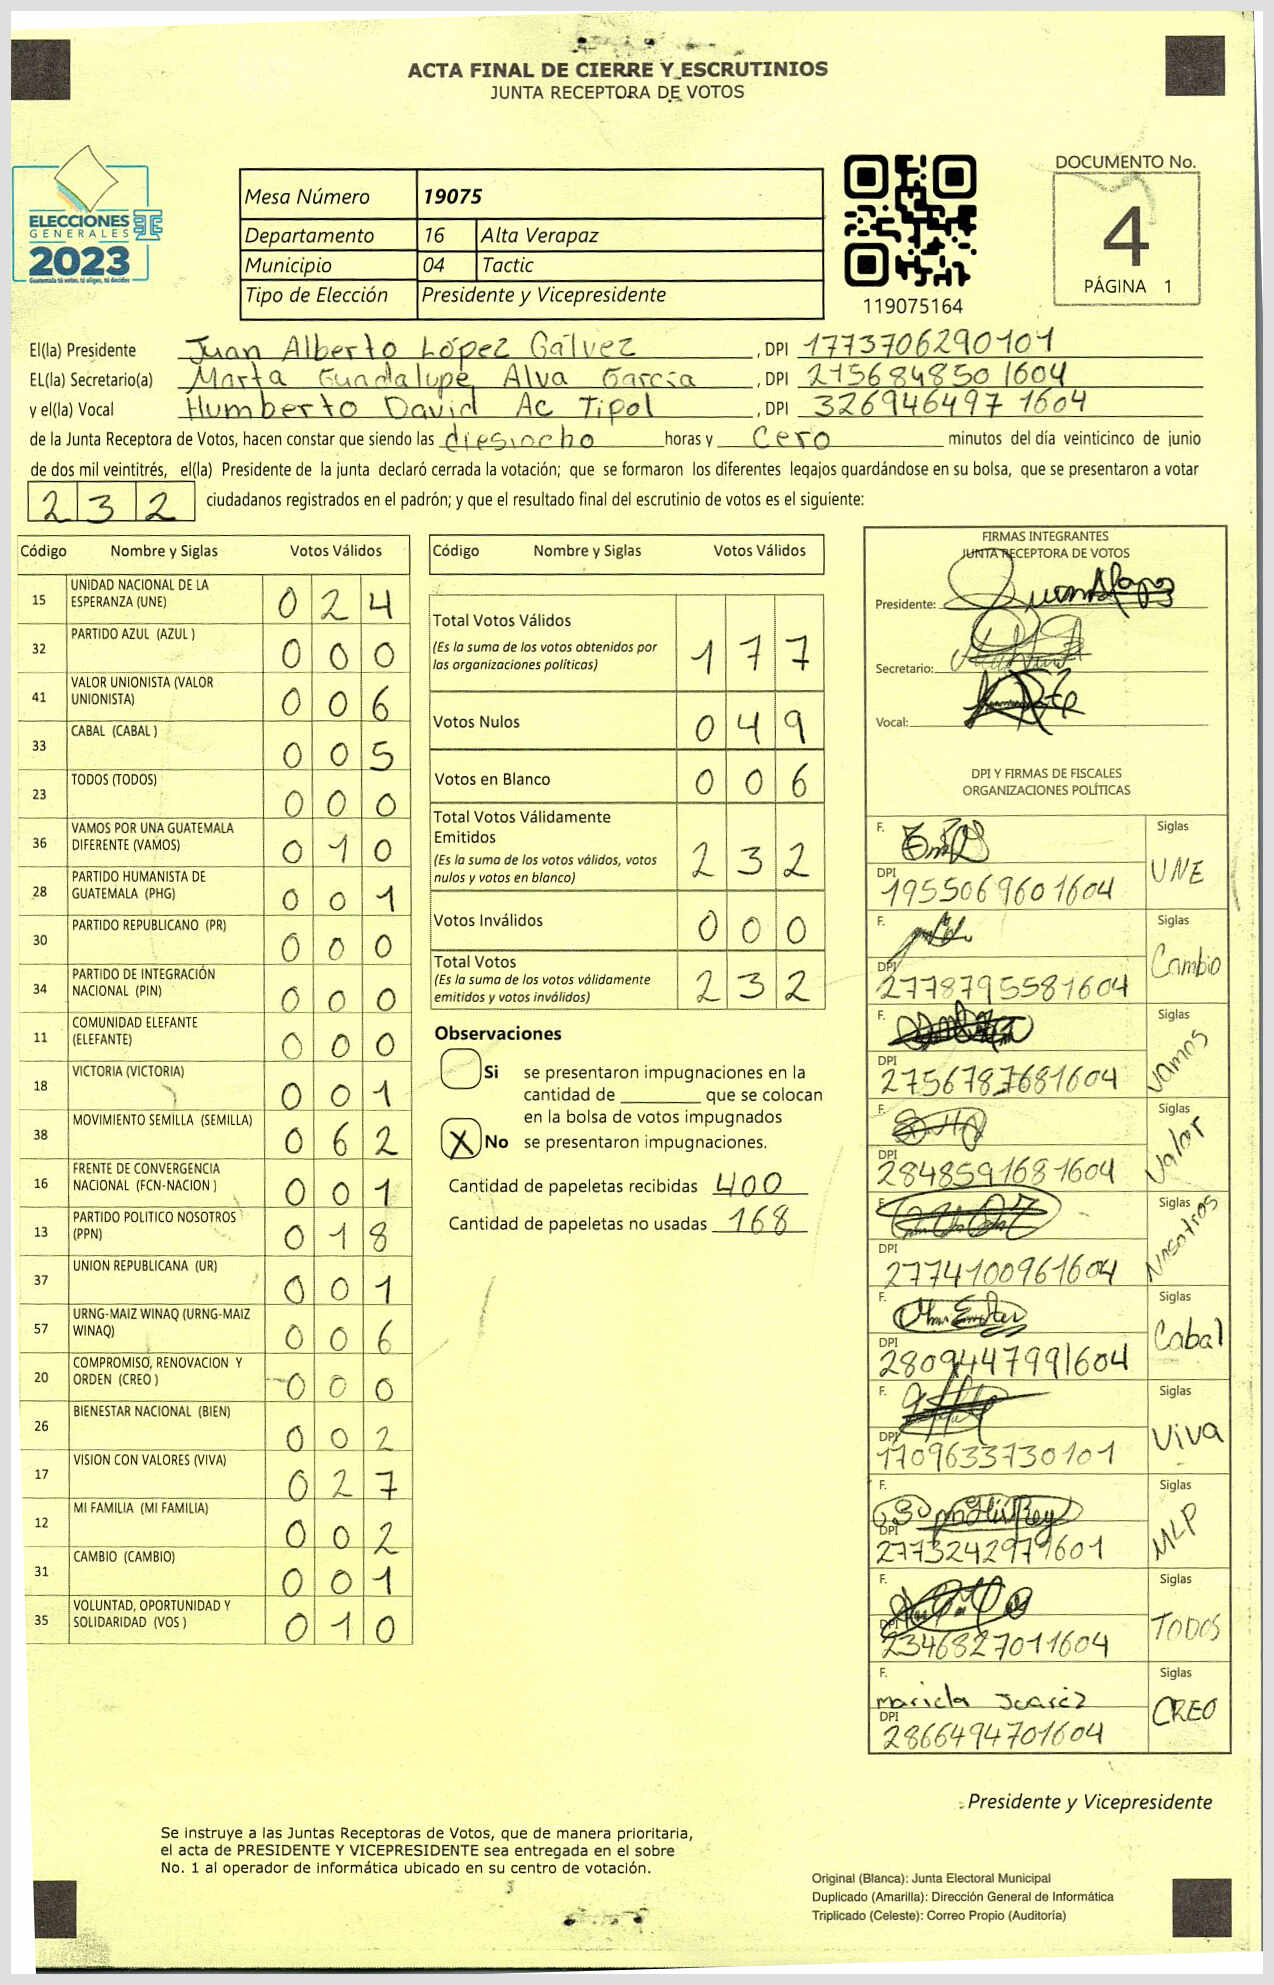 ACTA FINAL DE CIERRE Y ESCRUTINIOS
JUNTA RECEPTORA DE VOTOS
ELECCIONES
GENERALES
2023
Guatemala tú votas, tú eliges, tú decides
Mesa Número 19075
Departamento 16 Alta Verapaz
Municipio 04 Tactic
Tipo de Elección Presidente y Vicepresidente
119075164
DOCUMENTO No.
4
PÁGINA 1
El(la) Presidente Juan Alberto López Gálvez , DPI 1773706290101
EL(la) Secretario(a) Marta Guadalupe Alva García , DPI 215684850 1604
y el(la) Vocal Humberto David Ac Tipol , DPI 326946497 1604
de la Junta Receptora de Votos, hacen constar que siendo las diesiocho horas y cero minutos del día veinticinco de junio
de dos mil veintitrés, el(la) Presidente de la junta declaró cerrada la votación; que se formaron los diferentes legajos guardándose en su bolsa, que se presentaron a votar
232 ciudadanos registrados en el padrón; y que el resultado final del escrutinio de votos es el siguiente:
Código Nombre y Siglas Votos Válidos
15 UNIDAD NACIONAL DE LA ESPERANZA (UNE) 024
32 PARTIDO AZUL (AZUL ) 000
41 VALOR UNIONISTA (VALOR UNIONISTA) 006
33 CABAL (CABAL ) 005
23 TODOS (TODOS) 000
36 VAMOS POR UNA GUATEMALA DIFERENTE (VAMOS) 010
28 PARTIDO HUMANISTA DE GUATEMALA (PHG) 001
30 PARTIDO REPUBLICANO (PR) 000
34 PARTIDO DE INTEGRACIÓN NACIONAL (PIN) 000
11 COMUNIDAD ELEFANTE (ELEFANTE) 000
18 VICTORIA (VICTORIA) 001
38 MOVIMIENTO SEMILLA (SEMILLA) 062
16 FRENTE DE CONVERGENCIA NACIONAL (FCN-NACION ) 001
13 PARTIDO POLITICO NOSOTROS (PPN) 018
37 UNION REPUBLICANA (UR) 001
57 URNG-MAIZ WINAQ (URNG-MAIZ WINAQ) 006
20 COMPROMISO, RENOVACION Y ORDEN (CREO ) 000
26 BIENESTAR NACIONAL (BIEN) 002
17 VISION CON VALORES (VIVA) 027
12 MI FAMILIA (MI FAMILIA) 002
31 CAMBIO (CAMBIO) 001
35 VOLUNTAD, OPORTUNIDAD Y SOLIDARIDAD (VOS ) 010
Código Nombre y Siglas Votos Válidos
Total Votos Válidos 177
(Es la suma de los votos obtenidos por
las organizaciones políticas)
Votos Nulos 049
Votos en Blanco 006
Total Votos Válidamente
Emitidos 232
(Es la suma de los votos válidos, votos
nulos y votos en blanco)
Votos Inválidos 000
Total Votos 232
(Es la suma de los votos válidamente
emitidos y votos inválidos)
Observaciones
Si se presentaron impugnaciones en la
cantidad de ________ que se colocan
en la bolsa de votos impugnados
X No se presentaron impugnaciones.
Cantidad de papeletas recibidas 400
Cantidad de papeletas no usadas 168
FIRMAS INTEGRANTES
JUNTA RECEPTORA DE VOTOS
Presidente:
Secretario:
Vocal:
DPI Y FIRMAS DE FISCALES
ORGANIZACIONES POLÍTICAS
F. Siglas
DPI 1955069601604 UNE
F. Siglas
DPI 2778795581604 Cambio
F. Siglas
DPI 2756787681604 Vamos
F. Siglas
DPI 2848591681604 Valor
F. Siglas
DPI 2774100961604 Nosotros
F. Siglas
DPI 2809447991604 Cabal
F. Siglas
DPI 1709633730101 Viva
F. Siglas
DPI 2773242971601 MLP
F. Siglas
DPI 2346827011604 TODOS
F. Mariela Juaréz Siglas
DPI 2866494701604 CREO
Presidente y Vicepresidente
Se instruye a las Juntas Receptoras de Votos, que de manera prioritaria,
el acta de PRESIDENTE Y VICEPRESIDENTE sea entregada en el sobre
No. 1 al operador de informática ubicado en su centro de votación.
Original (Blanca): Junta Electoral Municipal
Duplicado (Amarilla): Dirección General de Informática
Triplicado (Celeste): Correo Propio (Auditoría)